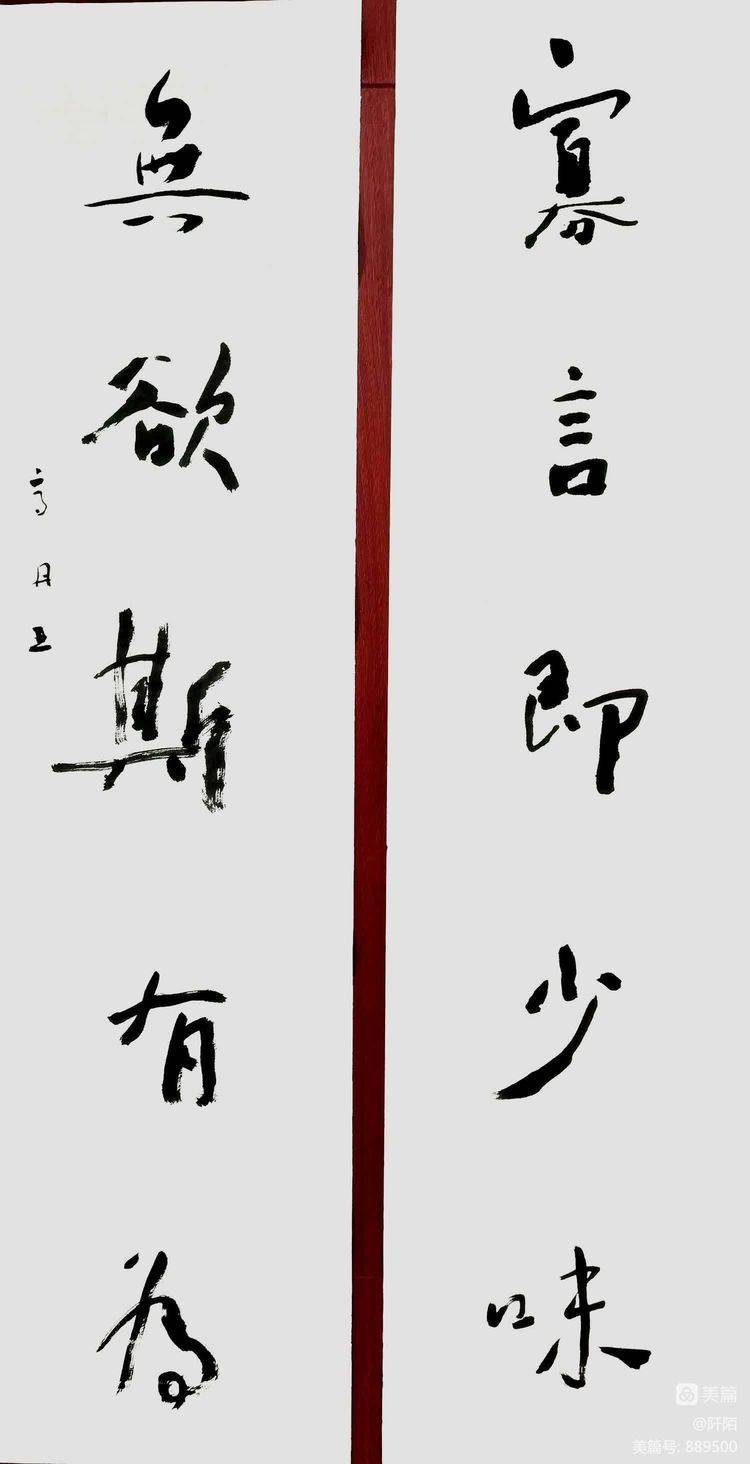 寡言即少味
無欲斯有為
高月五
美篇
@阡陌
美篇号: 889500